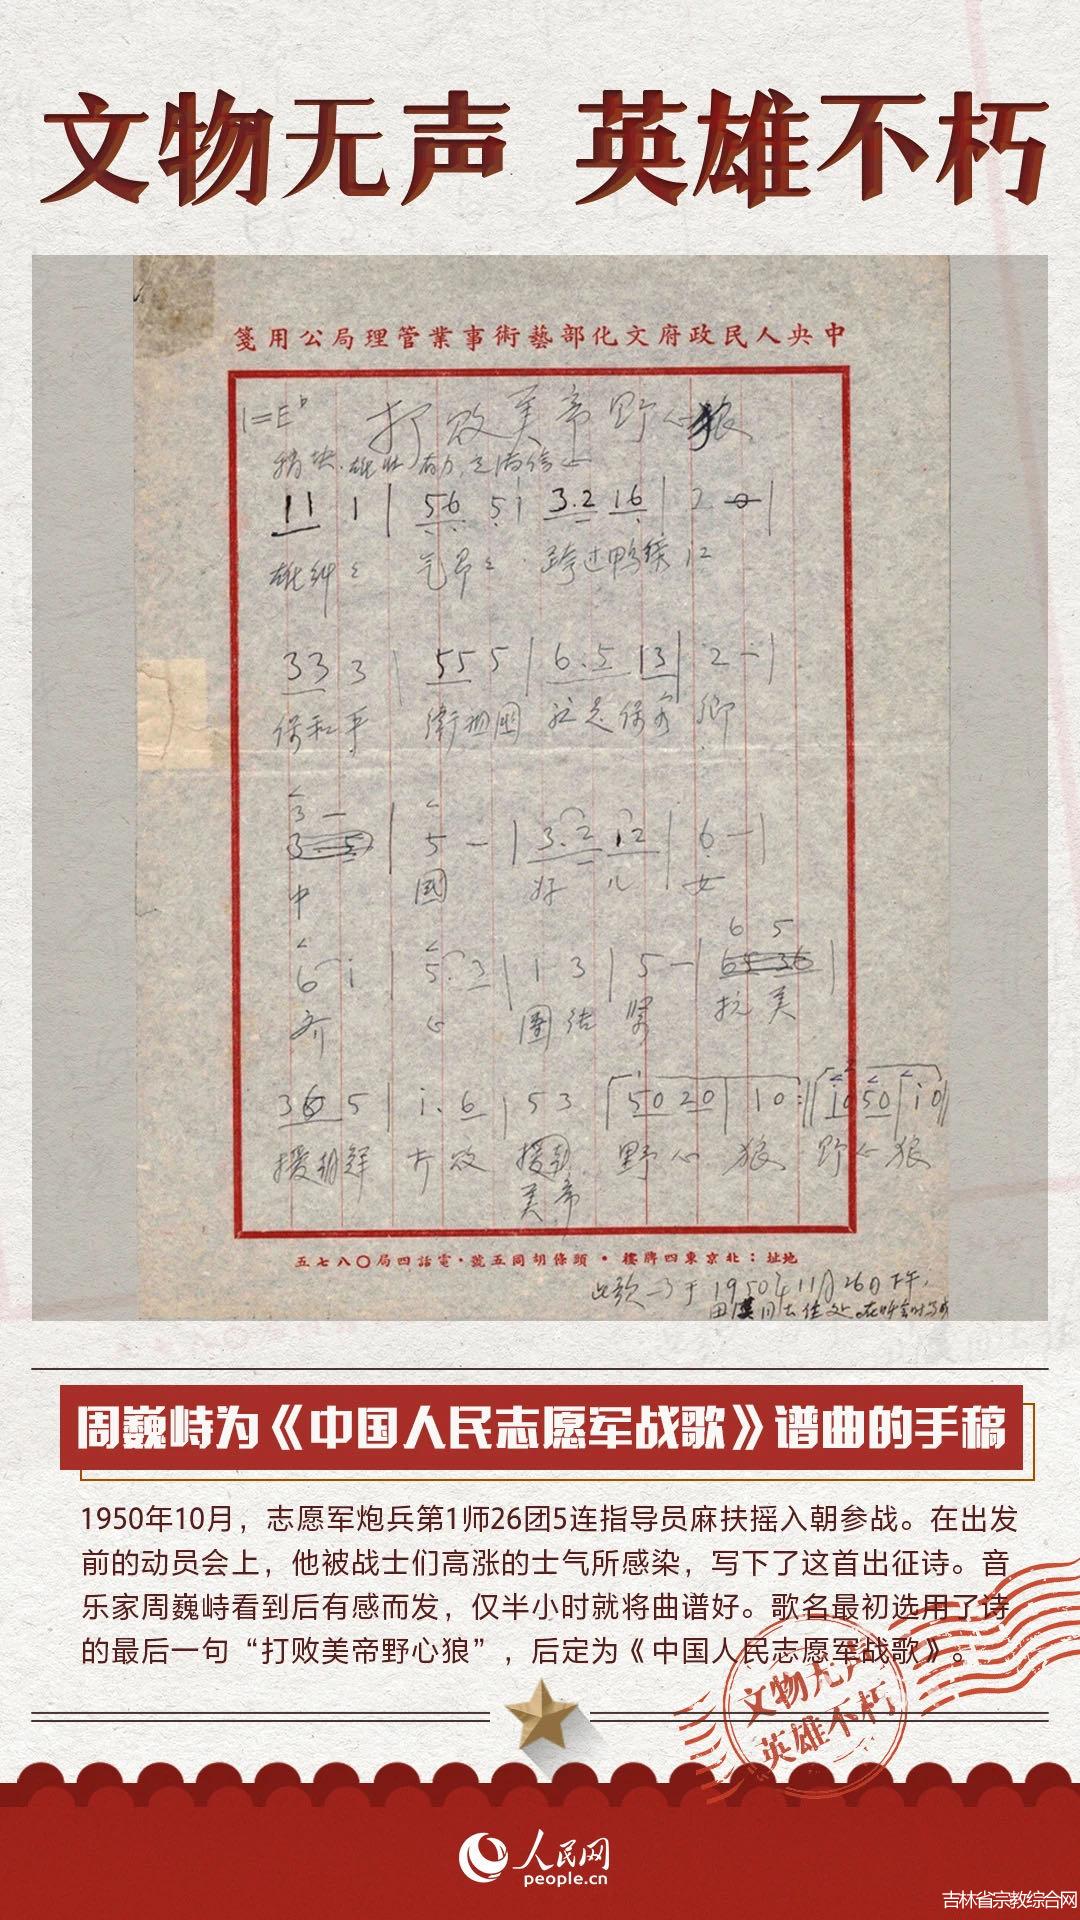 文物无声 英雄不朽
中央人民政府文化部藝術事業管理局公用箋
1=E♭ 打败美帝野心狼
11 1 | 56 51 | 3.2 16 | 2 0 |
雄纠々 气昂々 跨过鸭绿江
33 3 | 55 5 | 6.5 13 | 2 - |
保和平 衛祖國 就是保家鄉
3 -
3 5 | 5 - | 3.2 12 | 6 - |
中 國 好 儿 女
6 5
6 i | 5.3 | 1 3 | 5 - | 65 36 |
齐 心 團结 紧 抗 美
36 5 | i.6 | 53 | 50 20 | 10 :|| i0 50 | i0 ||
援朝鲜 打败 野心 狼 野心狼
美帝
地址：北京東四牌樓·頭條胡同五號·電話四局〇八七五
此歌 于1950年11月26日下午，
田漢同志住处 在 时写成
周巍峙为《中国人民志愿军战歌》谱曲的手稿
1950年10月，志愿军炮兵第1师26团5连指导员麻扶摇入朝参战。在出发
前的动员会上，他被战士们高涨的士气所感染，写下了这首出征诗。音
乐家周巍峙看到后有感而发，仅半小时就将曲谱好。歌名最初选用了诗
的最后一句“打败美帝野心狼”，后定为《中国人民志愿军战歌》。
文物无声
英雄不朽
人民网
people.cn
吉林省宗教综合网